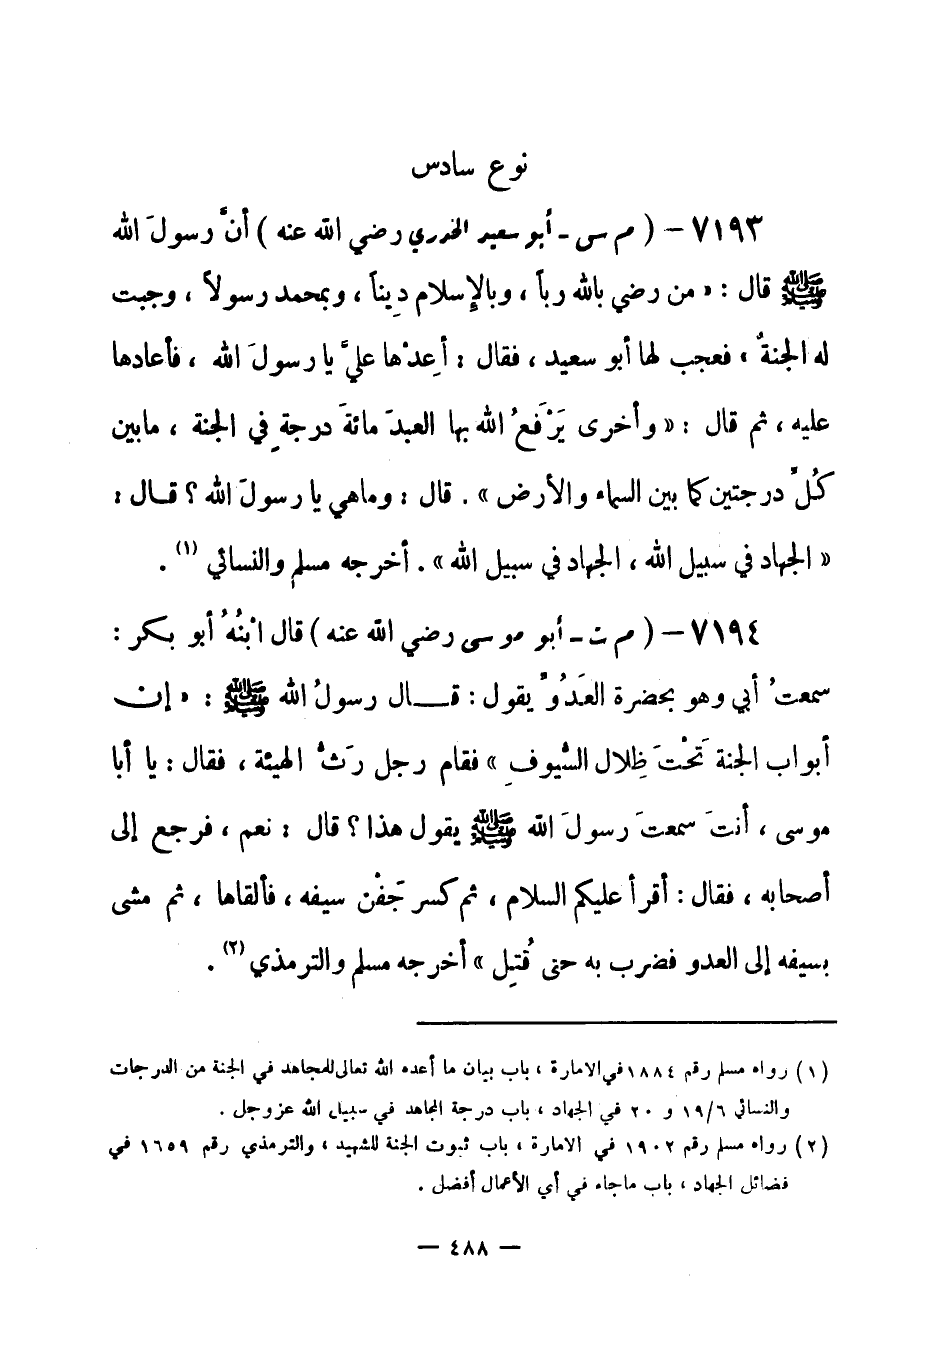 نوع سادس
٧١٩٣ – ( م س - أبو سعيد الخدري رضي الله عنه ) أنَّ رسولَ الله
ﷺ قال : « من رضي بالله رباً ، وبالإسلام دِيناً ، وبمحمد رسولاً ، وجبت
له الجنةُ » فعجب لها أبو سعيد ، فقال : أعِدْها عليَّ يا رسولَ الله ، فأعادها
عليه ، ثم قال : « وأخرى يَرْفَعُ الله بها العبدَ مائةَ درجةٍ في الجنة ، مابين
كُلِّ درجتين كما بين السماء والأرض » . قال : وماهي يا رسولَ الله ؟ قال :
« الجهاد في سبيل الله ، الجهاد في سبيل الله » . أخرجه مسلم والنسائي (١) .
٧١٩٤ – ( م ت - أبو موسى رضي الله عنه ) قال ابْنُهُ أبو بكر :
سمعتُ أبي وهو بحضرة العَدُوِّ يقول : قال رسولُ الله ﷺ : « إن
أبواب الجنة تَحْتَ ظِلال السُّيوفِ » فقام رجل رَثُّ الهيئة ، فقال : يا أبا
موسى ، أنتَ سمعتَ رسولَ الله ﷺ يقول هذا ؟ قال : نعم ، فرجع إلى
أصحابه ، فقال : أقرأ عليكم السلام ، ثم كسر جَفْن سيفه ، فألقاها ، ثم مشى
بسيفه إلى العدو فضرب به حتى قُتِل » أخرجه مسلم والترمذي (٢) .
(١) رواه مسلم رقم ١٨٨٤ في الامارة ، باب بيان ما أعده الله تعالى للمجاهد في الجنة من الدرجات
والنسائي ١٩/٦ و ٢٠ في الجهاد ، باب درجة المجاهد في سبيل الله عز وجل .
(٢) رواه مسلم رقم ١٩٠٢ في الامارة ، باب ثبوت الجنة للشهيد ، والترمذي رقم ١٦٥٩ في
فضائل الجهاد ، باب ماجاء في أي الأعمال أفضل .
— ٤٨٨ —